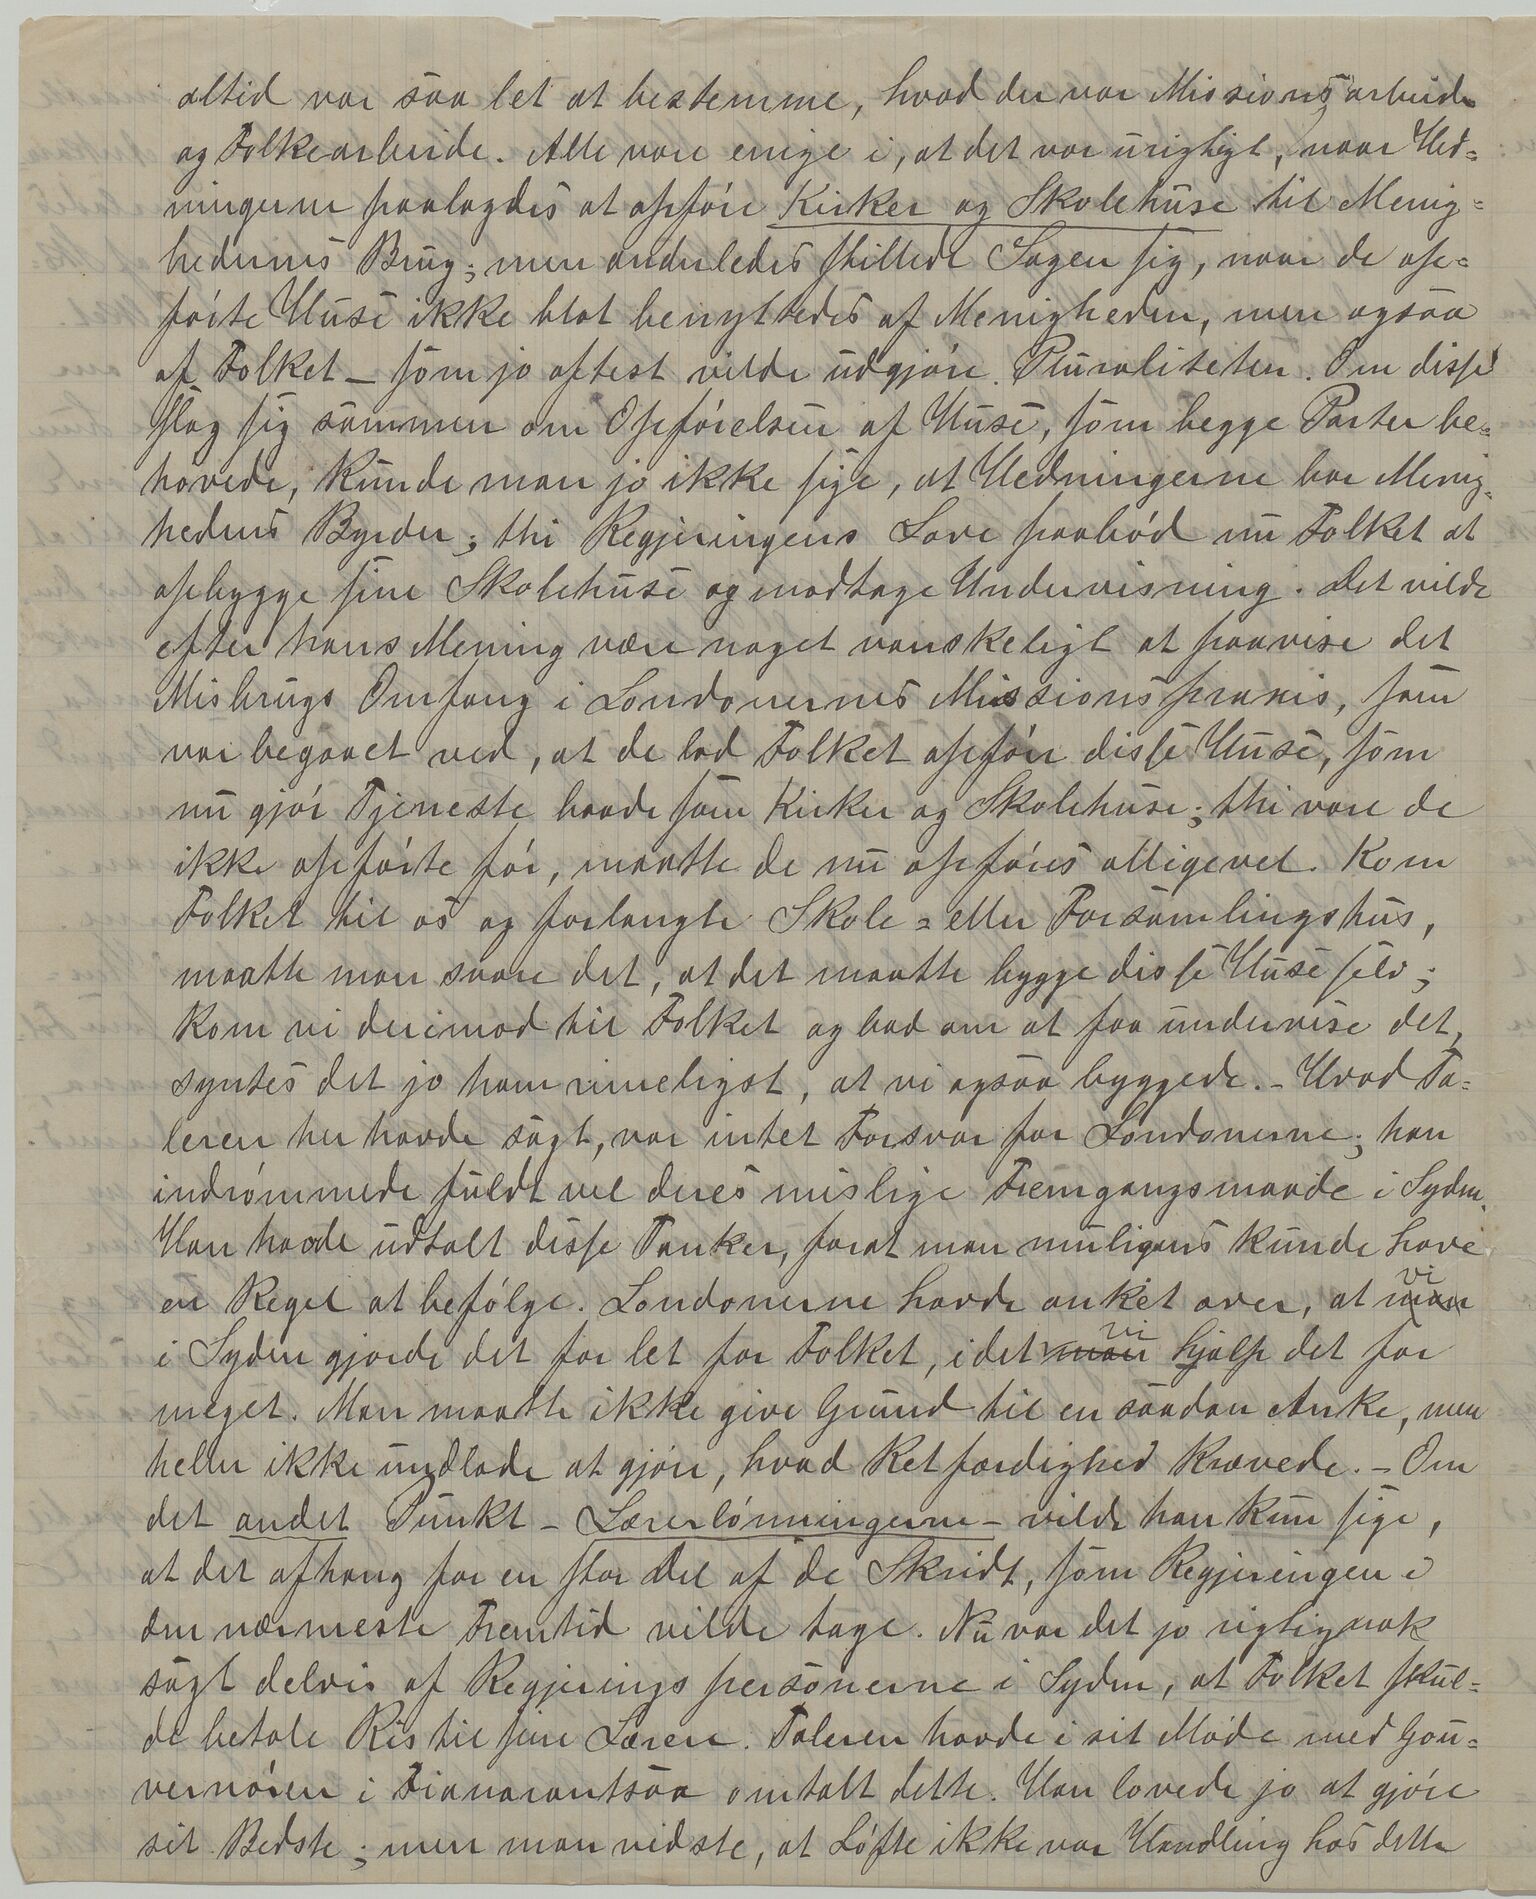 altid var saa let at bestemme, hvad der var Missionsarbeide
og Folkearbeide. Alle vare enige i, at det var urigtigt, naar Hed=
ningerne paalagdes at opføre Kirker og Skolehuse til Menig=
hedernes Brug; men anderledes stillede Sagen sig, naar de op=
førte Huse ikke blot benyttedes af Menigheden, men ogsaa
af Folket – som jo oftest vilde udgjøre Pluraliteten. Om disse
slog sig sammen om Opførelsen af Huse, som begge Parter be=
høvede, kunde man jo ikke sige, at Hedningerne bar Menig=
hedens Byrder; thi Regjeringens Love paabød nu Folket at
opbygge sine Skolehuse og modtage Undervisning. Det vilde
efter hans Mening være noget vanskeligt at paavise det
Misbrugs Omfang i Londonernes Missionspraxis, som
var begaaet ved, at de lod Folket opføre disse Huse, som
nu gjør Tjeneste baade som Kirker og Skolehuse; thi vare de
ikke opførte før, maatte de nu opføres alligevel. Kom
Folket til os og forlangte Skole= eller Forsamlingshus,
maatte man svare det, at det maatte bygge disse Huse selv;
kom vi derimod til Folket og bad om at faa undervise det,
syntes det jo ham rimeligst, at vi ogsaa byggede. – Hvad Ta=
leren her havde sagt, var intet Forsvar for Londonerne; han
indrømmede fuldt vel deres mislige Fremgangsmaade i Syden.
Han havde udtalt disse Tanker, forat man muligens kunde have
en Regel at befølge. Londonerne havde anket over, at man vi
i Syden gjorde det for let for Folket, idet man vi hjalp det for
meget. Man maatte ikke give Grund til en saadan Anke, men
heller ikke undlade at gjøre, hvad Retfærdighed krævede. – Om
det andet Punkt – Lærerlønningerne – vilde han kun sige,
at det afhang for en stor Del af de Skridt, som Regjeringen i
den nærmeste Fremtid vilde tage. Nu var det jo rigtignok
sagt delvis af Regjeringspersonerne i Syden, at Folket skul=
de betale Ris til sine Lærere. Taleren havde i sit Møde med Gou=
vernøren i Fianarantsoa omtalt dette. Han lovede jo at gjøre
sit Bedste; men man vidste, at Løfte ikke var Handling hos dette